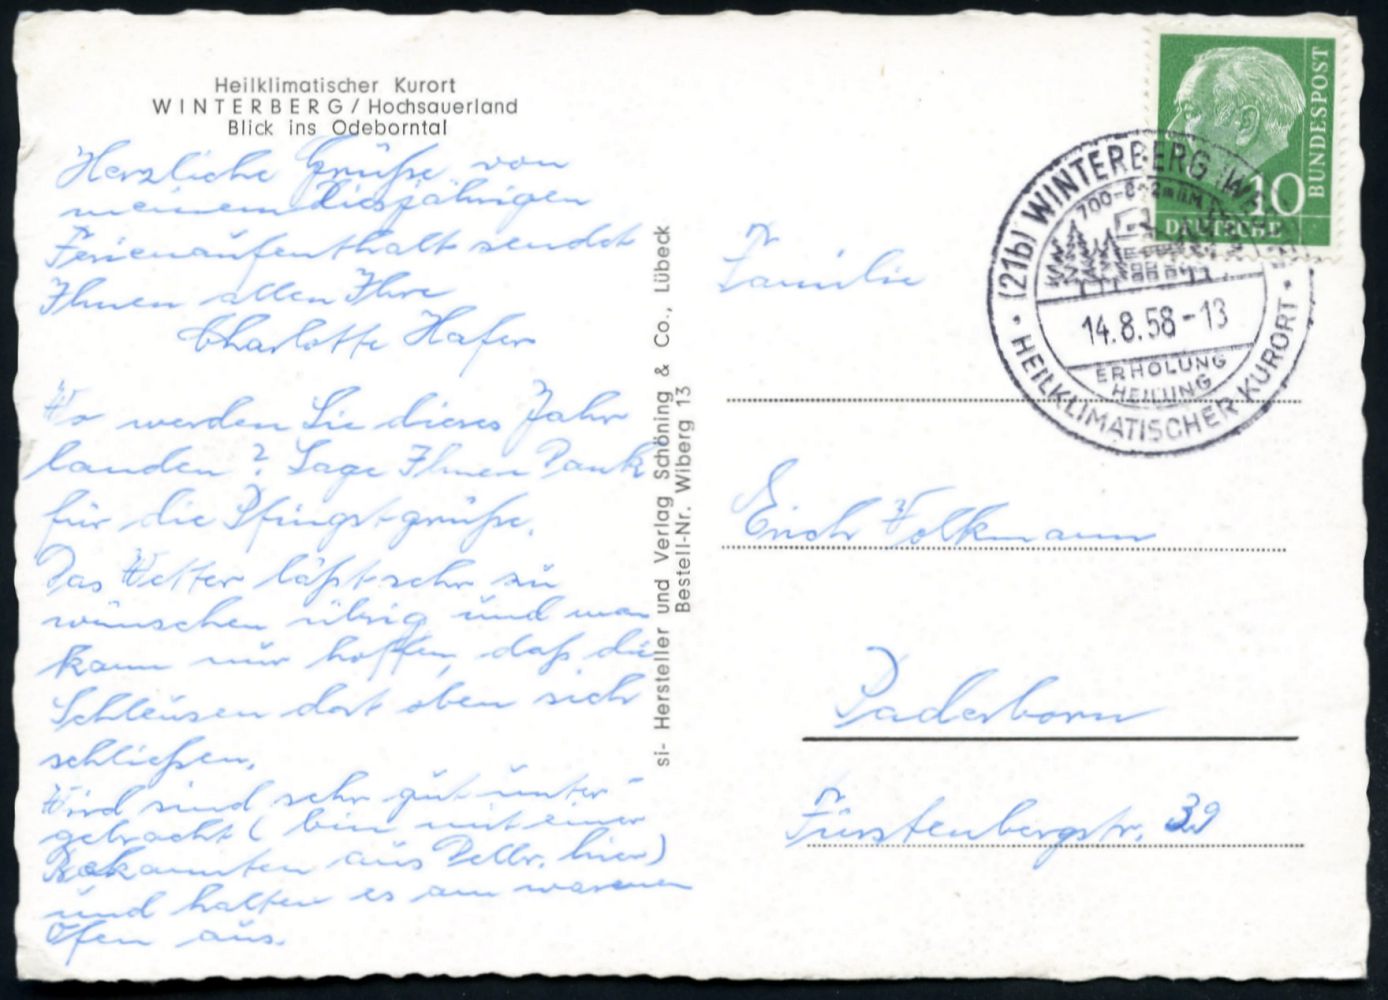 Heilklimatischer Kurort
WINTERBERG/Hochsauerland
Blick ins Odeborntal
Herzliche Grüße von
meinem diesjährigen
Ferienaufenthalt sendet
Ihnen allen Ihre
Charlotte Hafer
Wo werden Sie dieses Jahr
landen? Sage Ihnen Dank
für die Pfingstgrüße.
Das Wetter läßt sehr zu
wünschen übrig und man
kann nur hoffen, daß die
Schleusen dort oben sich
schließen.
Wird sind sehr gut unter-
gebracht (bin mit einer
Bekannten aus Dellbr. hier)
und halten es am warmen
Ofen aus.
si- Hersteller und Verlag Schöning & Co., Lübeck
Bestell-Nr. Wiberg 13
DEUTSCHE
BUNDESPOST
10
(21b) WINTERBERG
14.8.58-13
ERHOLUNG
HEILUNG
HEILKLIMATISCHER KURORT
Familie
Erich Volkmann
Paderborn
Fürstenbergstr. 39